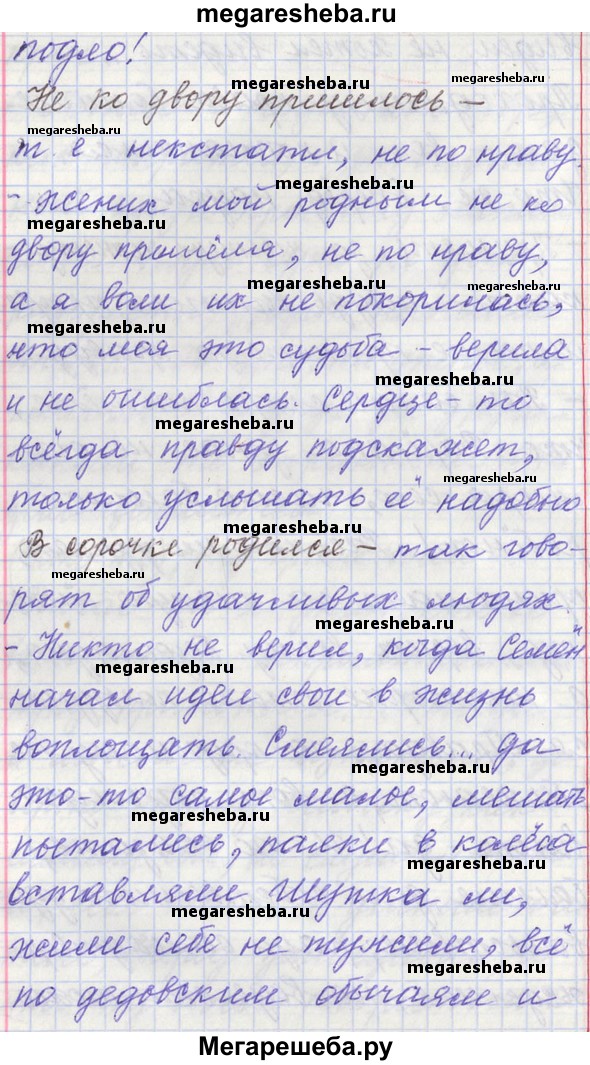 megaresheba.ru
подло!
megaresheba.ru
Не ко двору пришлось -
megaresheba.ru
megaresheba.ru
т. е некстати, не по нраву.
megaresheba.ru
- жених мой родным не ко
megaresheba.ru
двору пришёлся, не по нраву,
megaresheba.ru
а я воли их не покорилась,
megaresheba.ru
что моя это судьба - верила
megaresheba.ru
и не ошиблась. Сердце-то
всегда правду подскажет,
megaresheba.ru
только услышать её надобно
megaresheba.ru
В сорочке родился - так гово-
megaresheba.ru
рят об удачливых людях.
- Никто не верил, когда Семён
megaresheba.ru
начал идеи свои в жизнь
воплощать. Смеялись... да
megaresheba.ru
это-то самое малое, мешать
megaresheba.ru
пытались, палки в колёса
megaresheba.ru
вставляли Шутка ли,
megaresheba.ru
жили себе не тужили, всё
megaresheba.ru
по дедовским обычаям и
Мегарешеба.ру